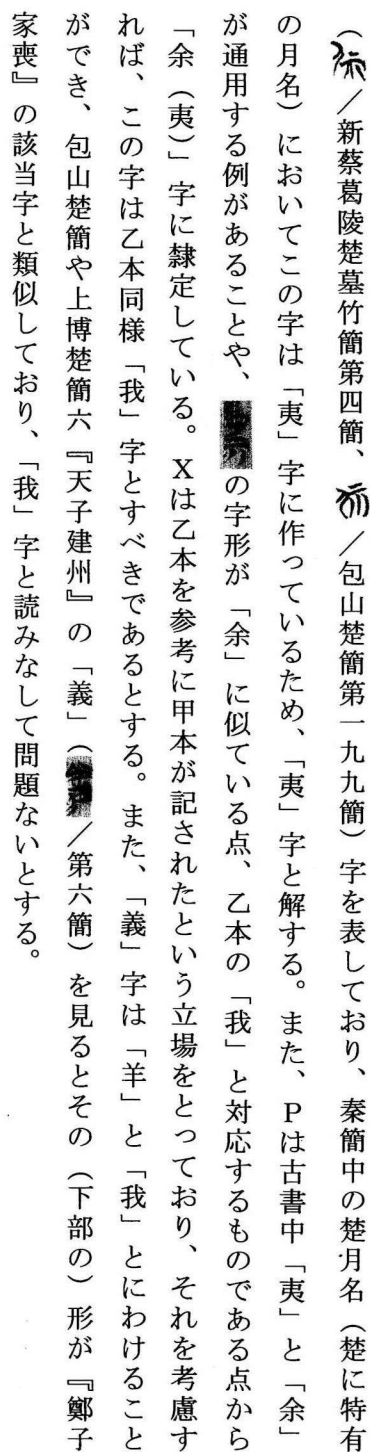 （／新蔡葛陵楚墓竹簡第四簡、／包山楚簡第一九九簡）字を表しており、秦簡中の楚月名（楚に特有
の月名）においてこの字は「夷」字に作っているため、「夷」字と解する。また、Pは古書中「夷」と「余」
が通用する例があることや、の字形が「余」に似ている点、乙本の「我」と対応するものである点から
「余（夷）」字に隸定している。Xは乙本を参考に甲本が記されたという立場をとっており、それを考慮す
れば、この字は乙本同様「我」字とすべきであるとする。また、「義」字は「羊」と「我」とにわけること
ができ、包山楚簡や上博楚簡六『天子建州』の「義」（／第六簡）を見るとその（下部の）形が『鄭子
家喪』の該当字と類似しており、「我」字と読みなして問題ないとする。